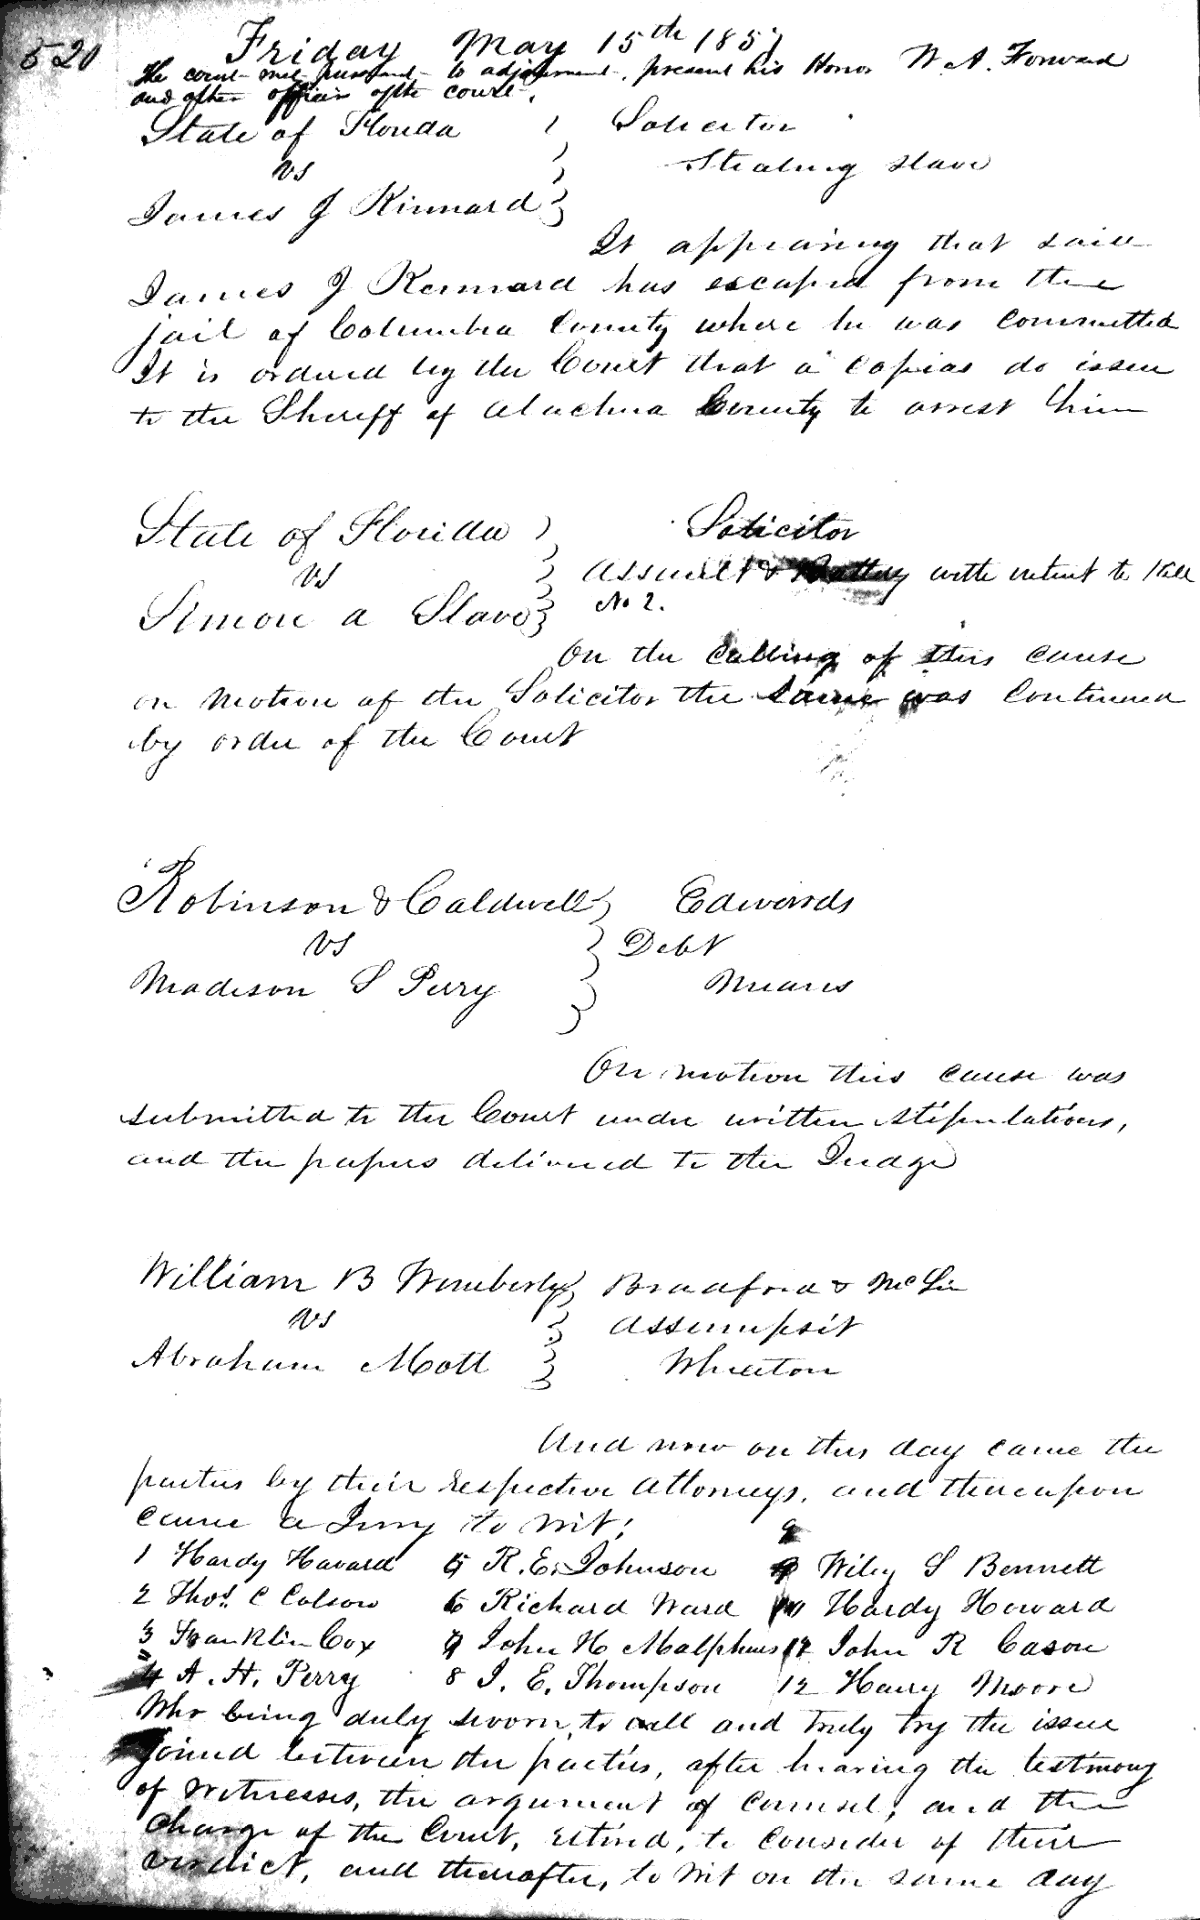 520
Friday May 15th 1857
The court met pursuant to adjournment, present his Honor W. A. Forward
and other officers of the court.
State of Florida } Solicitor
vs } Stealing slave
James J Kinnard }
It appearing that said
James J Kennard has escaped from the
jail of Columbia County where he was committed
It is ordered by the Court that a capias do issue
to the Sheriff of Alachua County to arrest him
State of Florida } Solicitor
vs } Assault & Battery with intent to kill
Simon a Slave } No 2.
On the calling of this cause
on motion of the Solicitor the same was continued
by order of the Court
Robinson & Caldwell } Edwards
vs } Debt
Madison S Perry } Means
On motion this cause was
submitted to the Court under written stipulations,
and the papers delivered to the Judge
William B Wimberly } Bradford & McLin
vs } Assumpsit
Abraham Mott } Wheaton
And now on this day came the
parties by their respective Attorneys, and thereupon
came a Jury to wit:
9
1 Hardy Havard 5 R. E. Johnson 9 Wiley S Bennett
2 Thos. C Colson 6 Richard Ward 10 Hardy Howard
3 Franklin Cox 7 John H Malphurs 11 John R Cason
4 A. H. Perry 8 J. E. Thompson 12 Harry Moore
Who being duly sworn, to well and truly try the issue
joined between the parties, after hearing the testimony
of witnesses, the argument of counsel, and the
charge of the Court, retired, to consider of their
verdict, and thereafter, to wit on the same day